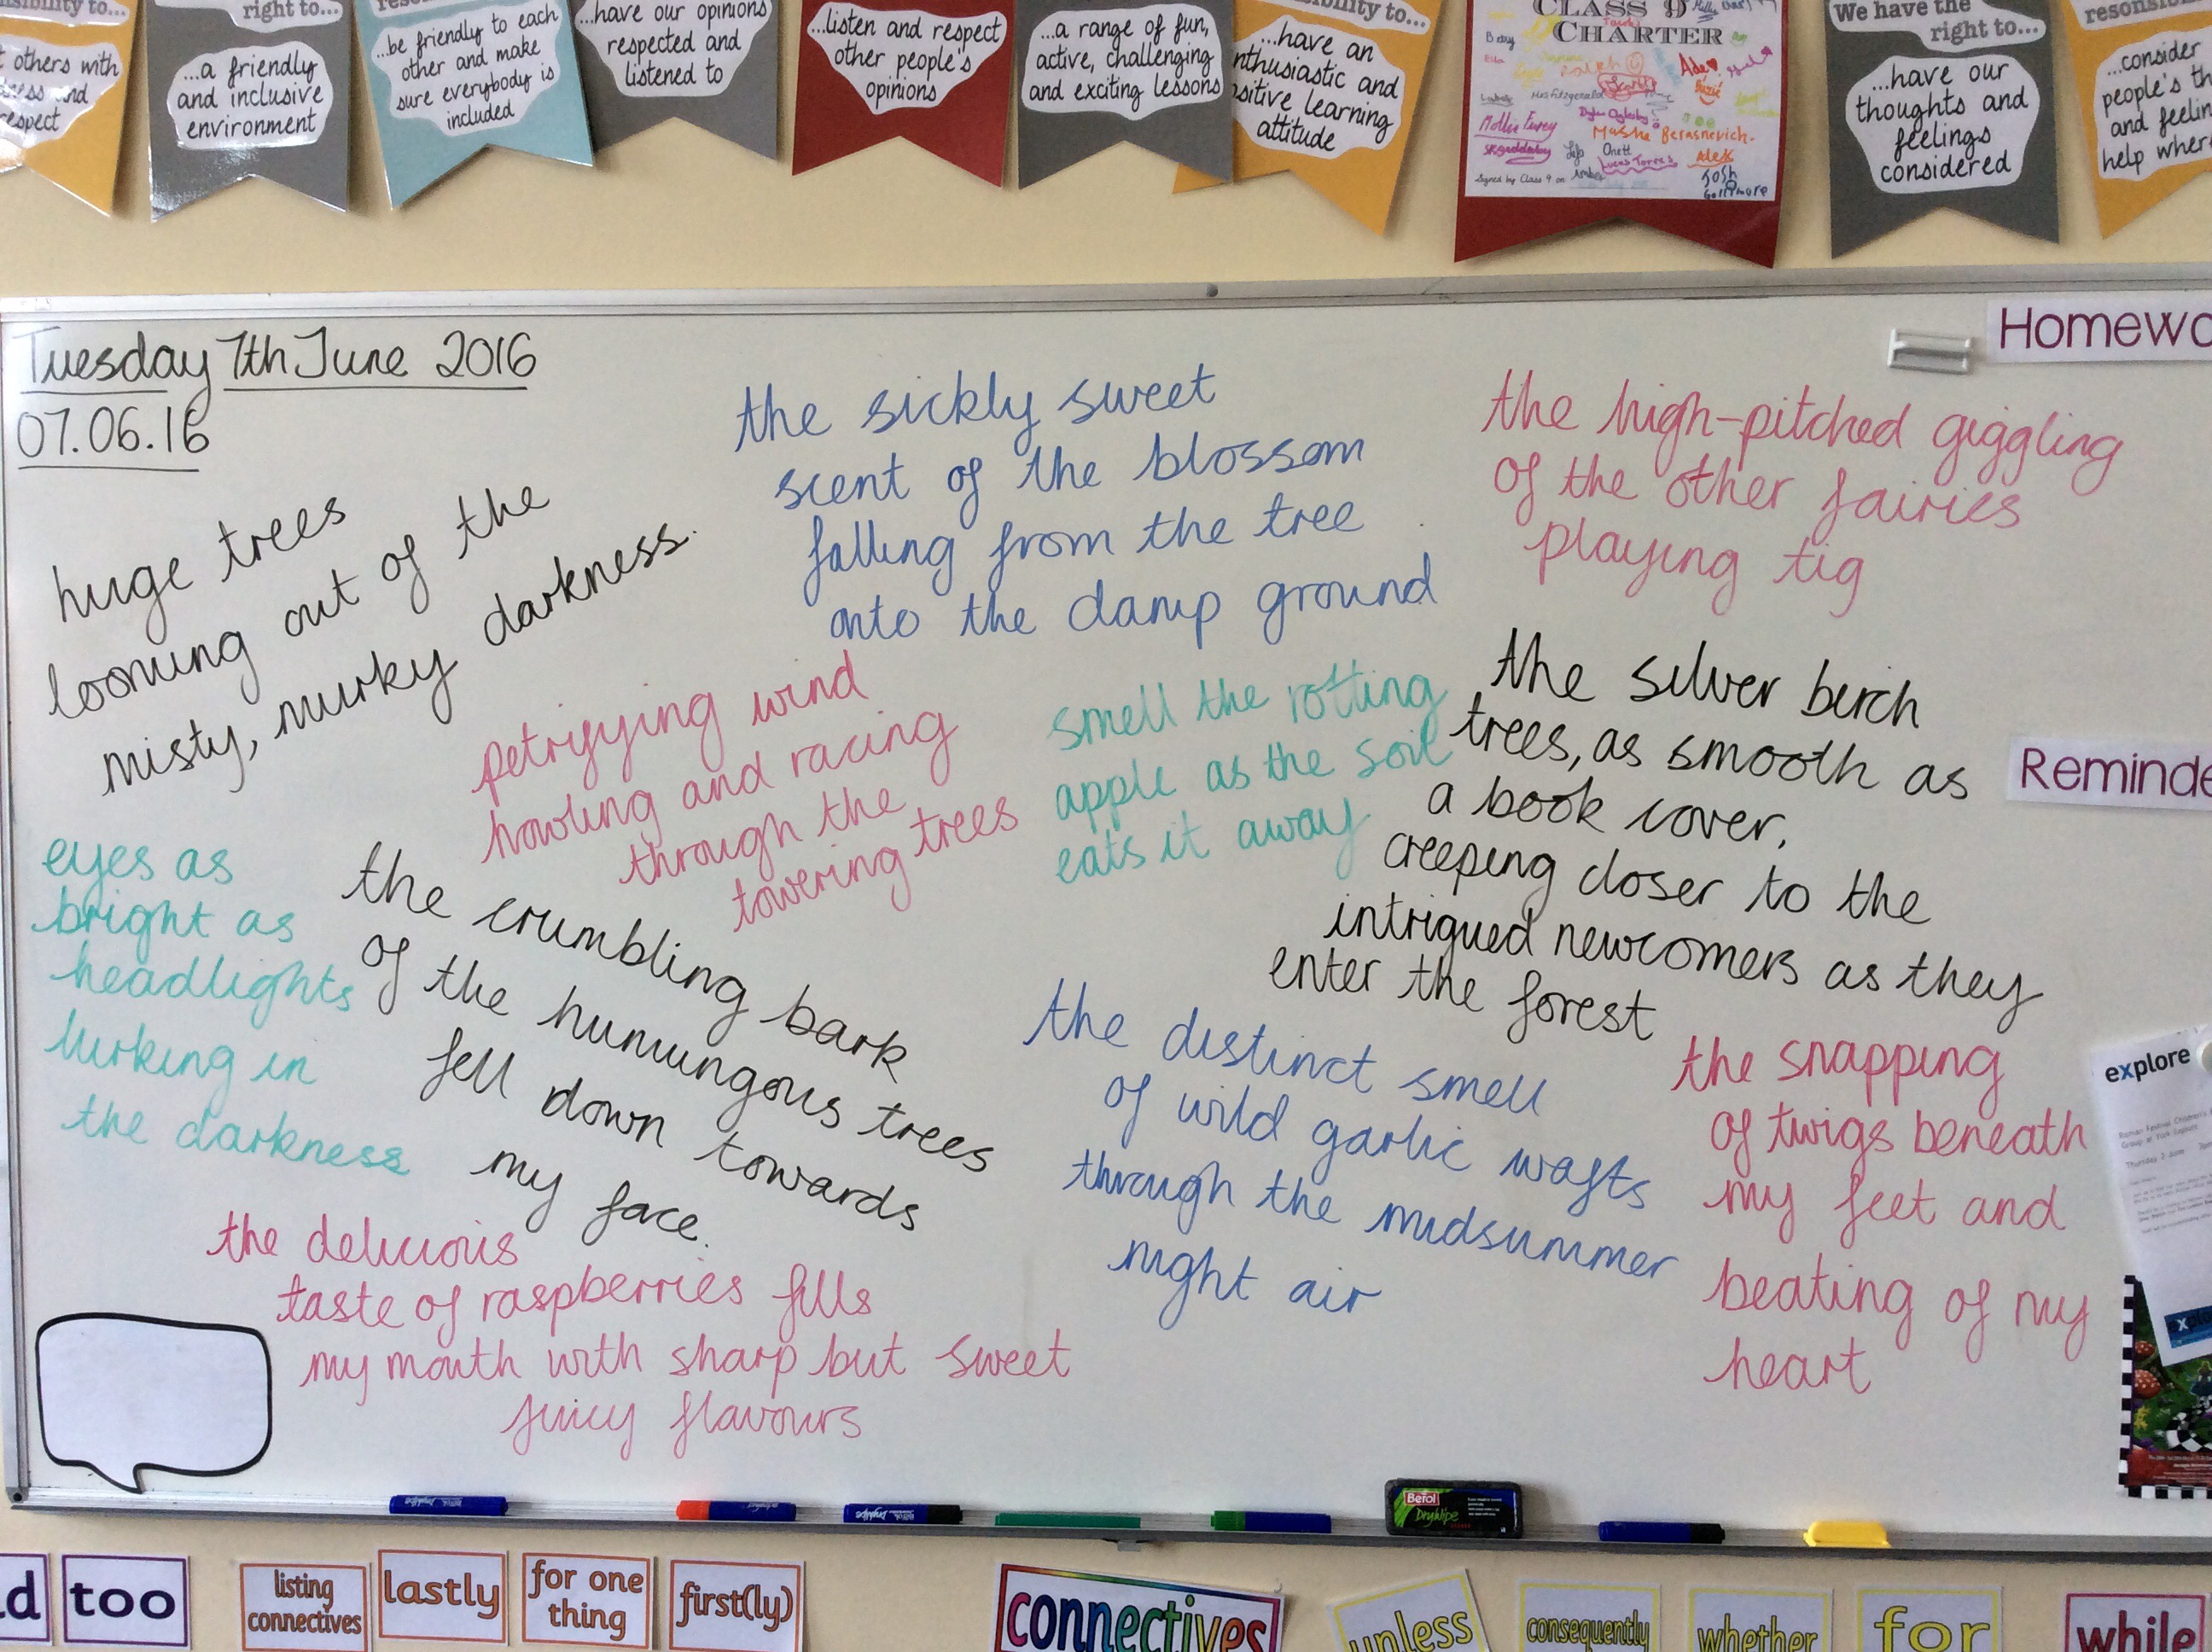 right to...
...a friendly
and inclusive
environment
...be friendly to each
other and make
sure everybody is
included
...have our opinions
respected and
listened to
...listen and respect
other people's
opinions
...a range of fun,
active, challenging
and exciting lessons
...have an
attitude
CLASS 9
CHARTER
Signed by Class 9 on
We have the
right to...
...have our
thoughts and
feelings
considered
...consider
people's
others with
Tuesday 7th June 2016
07.06.16
huge trees
looming out of the
misty, murky darkness.
the sickly sweet
scent of the blossom
falling from the tree
onto the damp ground
the high-pitched giggling
of the other fairies
playing tig
petrifying wind
howling and racing
through the
towering trees
smell the rotting
apple as the soil
eats it away
the silver birch
trees, as smooth as
a book cover,
creeping closer to the
intrigued newcomers as they
enter the forest
eyes as
bright as
headlights
lurking in
the darkness
the crumbling bark
of the humungous trees
fell down towards
my face.
the distinct smell
of wild garlic wafts
through the midsummer
night air
the snapping
of twigs beneath
my feet and
beating of my
heart
the delicious
taste of raspberries fills
my mouth with sharp but sweet
juicy flavours
Homewo
Reminde
explore
Berol
Drywipe
too
listing
connectives
lastly
for one
thing
first(ly)
connectives
unless
consequently
whether
for
while